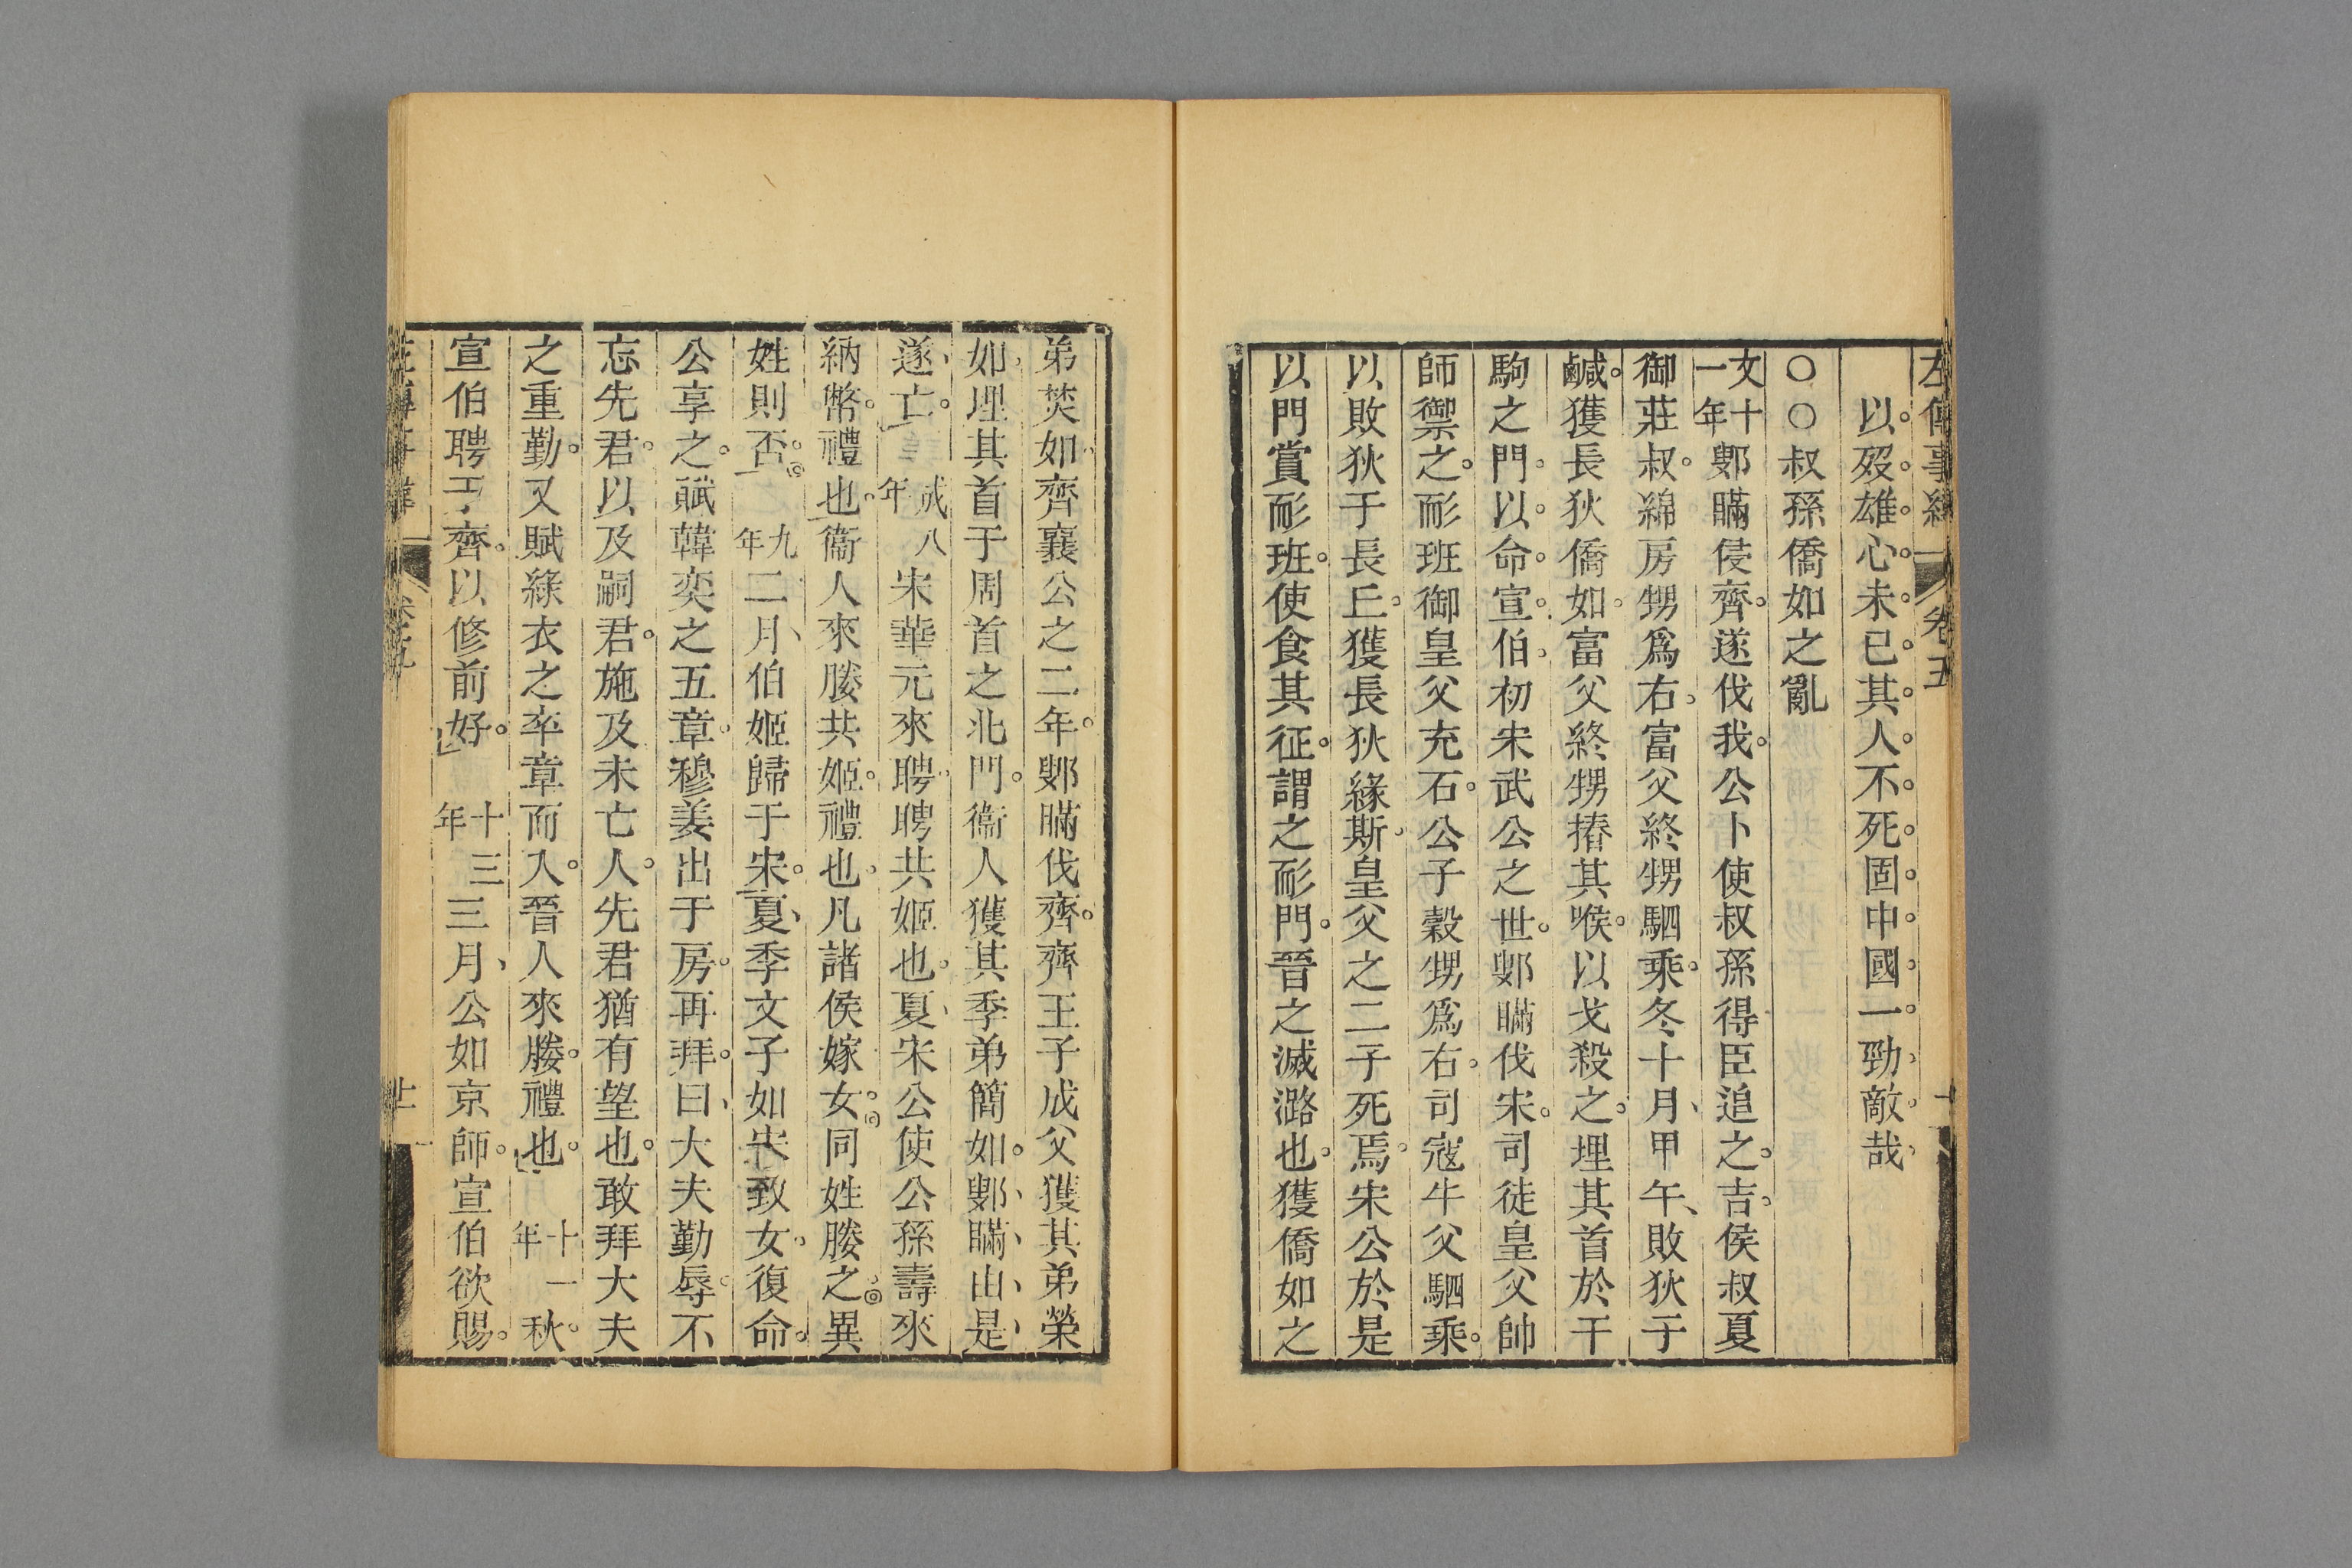 左傳事緯 卷五
以歿雄心未已其人不死固中國一勁敵哉
○○叔孫僑如之亂
文十一年鄋瞞侵齊遂伐我公卜使叔孫得臣追之吉侯叔夏
御莊叔綿房甥爲右富父終甥駟乘冬十月甲午敗狄于
鹹獲長狄僑如富父終甥摏其喉以戈殺之埋其首於子
駒之門以命宣伯初宋武公之世鄋瞞伐宋司徒皇父帥
師禦之耏班御皇父充石公子穀甥爲右司寇牛父駟乘
以敗狄于長丘獲長狄緣斯皇父之二子死焉宋公於是
以門賞耏班使食其征謂之耏門晉之滅潞也獲僑如之
弟焚如齊襄公之二年鄋瞞伐齊齊王子成父獲其弟榮
如埋其首于周首之北門衞人獲其季弟簡如鄋瞞由是
遂亡 成八年 宋華元來聘聘共姬也夏宋公使公孫壽來
納幣禮也衞人來媵共姬禮也凡諸侯嫁女同姓媵之異
姓則否 九年 二月伯姬歸于宋夏季文子如宋致女復命
公享之賦韓奕之五章穆姜出于房再拜曰大夫勤辱不
忘先君以及嗣君施及未亡人先君猶有望也敢拜大夫
之重勤又賦綠衣之卒章而入晉人來媵禮也 十一年 秋
宣伯聘于齊以修前好 十三年 三月公如京師宣伯欲賜
左傳事緯 卷五 廿一